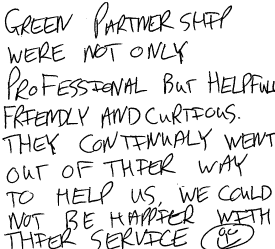 GREEN PARTNERSHIP
WERE NOT ONLY
PROFESSIONAL BUT HELPFULL
FRIENDLY AND CURTIOUS.
THEY CONTINUALY WENT
OUT OF THIER WAY
TO HELP US, WE COULD
NOT BE HAPPIER WITH
THIER SERVICE